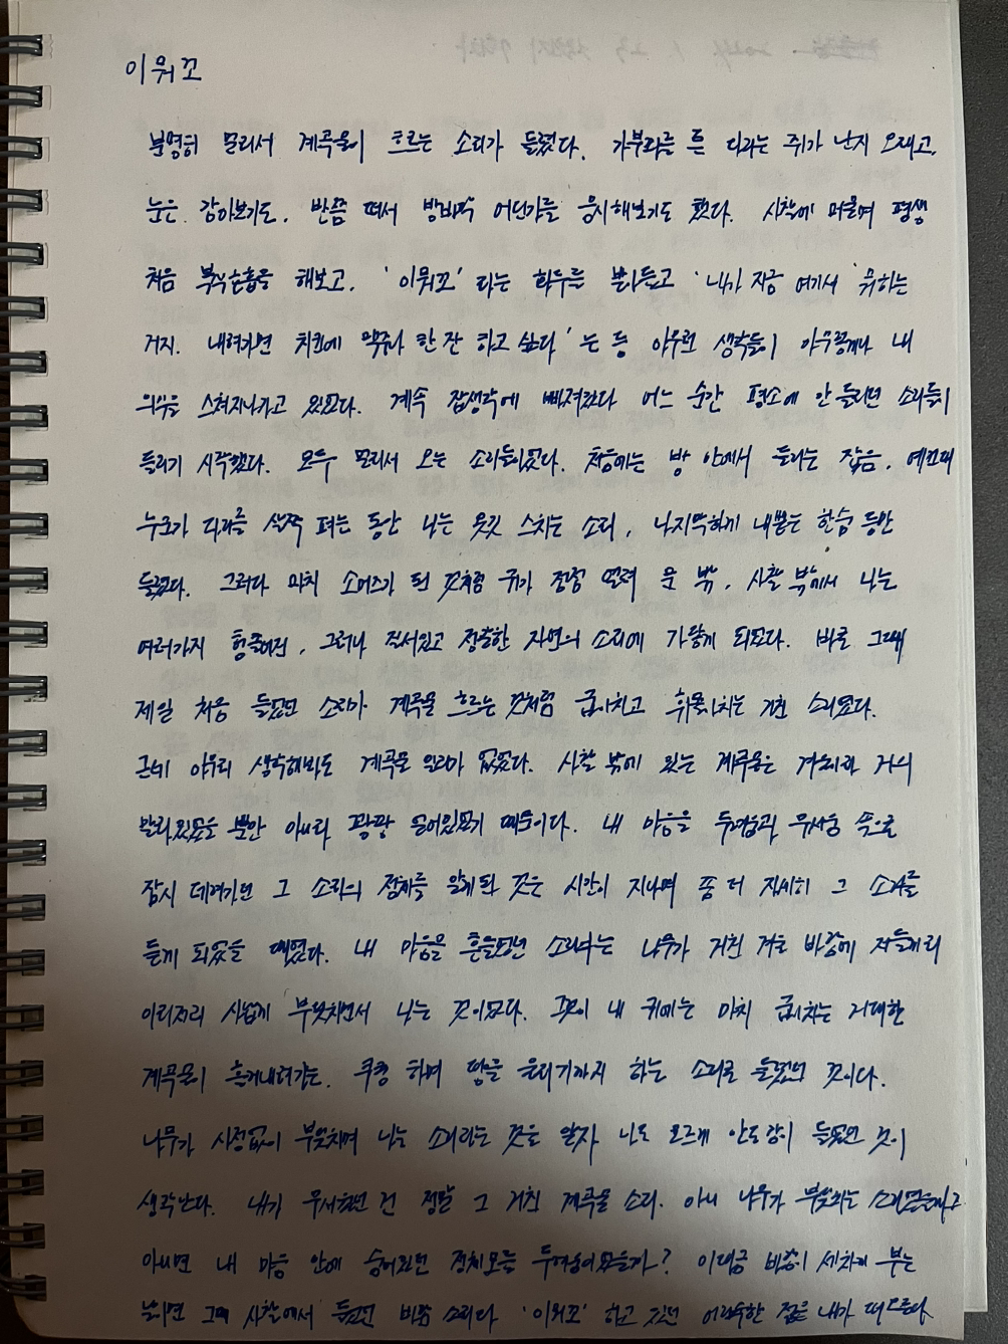 이뭐꼬
분명히 멀리서 계곡물이 흐르는 소리가 들렸다. 가부좌를 튼 다리는 쥐가 난지 오래고,
눈은 감아보기도, 반쯤 떠서 방바닥 어딘가를 응시해보기도 했다. 사찰에 머물며 평생
처음 묵언수행을 해보고, '이뭐꼬' 라는 화두를 받아들고 '내가 지금 여기서 뭐하는
거지. 내려가면 치킨에 맥주나 한 잔 하고 싶다' 는 등 아무런 생각들이 아무렇게나 내
의식을 스쳐지나가고 있었다. 계속 잡생각에 빠져있다 어느 순간 평소에 안 들리던 소리들이
들리기 시작했다. 모두 멀리서 오는 소리들이었다. 처음에는 방 안에서 들리는 잡음, 예컨대
누군가 다리를 살짝 펴는 동안 나는 옷깃 스치는 소리, 나지막하게 내뱉는 한숨 등만
들렸다. 그러다 마치 소머즈가 된 것처럼 귀가 점점 열려 문 밖, 사찰 밖에서 나는
여러가지 헝클어진, 그러나 질서있고 정돈한 자연의 소리에 가닿게 되었다. 바로 그때
제일 처음 들렸던 소리가 계곡물 흐르는 것처럼 굽이치고 휘몰아치는 거친 소리였다.
근데 아무리 생각해봐도 계곡물 일리가 없었다. 사찰 밖에 있는 계곡물은 겨울이라 거의
말라있었을 뿐만 아니라 꽝꽝 얼어있었기 때문이다. 내 마음을 두려움과 무서움 속으로
잠시 데려가던 그 소리의 정체를 알게된 것은 시간이 지나며 좀 더 자세히 그 소리를
듣게 되었을 때였다. 내 마음을 흔들었던 소리는 나무가 거친 겨울 바람에
이리저리 사납게 부딪치면서 나는 것이었다. 그것이 내 귀에는 마치 굽이치는 거대한
계곡물이 흘러내려가는, 쿠쿵 하며 땅을 울리기까지 하는 소리로 들렸던 것이다.
나무가 사정없이 부딪치며 나는 소리라는 것을 알자 나도 모르게 안도감이 들었던 것이
생각난다. 내가 무서웠던 건 정말 그 거친 계곡물 소리, 아니 나무가 부딪히는 소리였을까?
아니면 내 마음 안에 숨어있던 정체모를 두려움이었을까? 이따금 바람이 세차게 부는
날이면 그때 사찰에서 들었던 바람 소리와 '이뭐꼬' 하고 있던 어리숙한 젊은 내가 떠오른다.